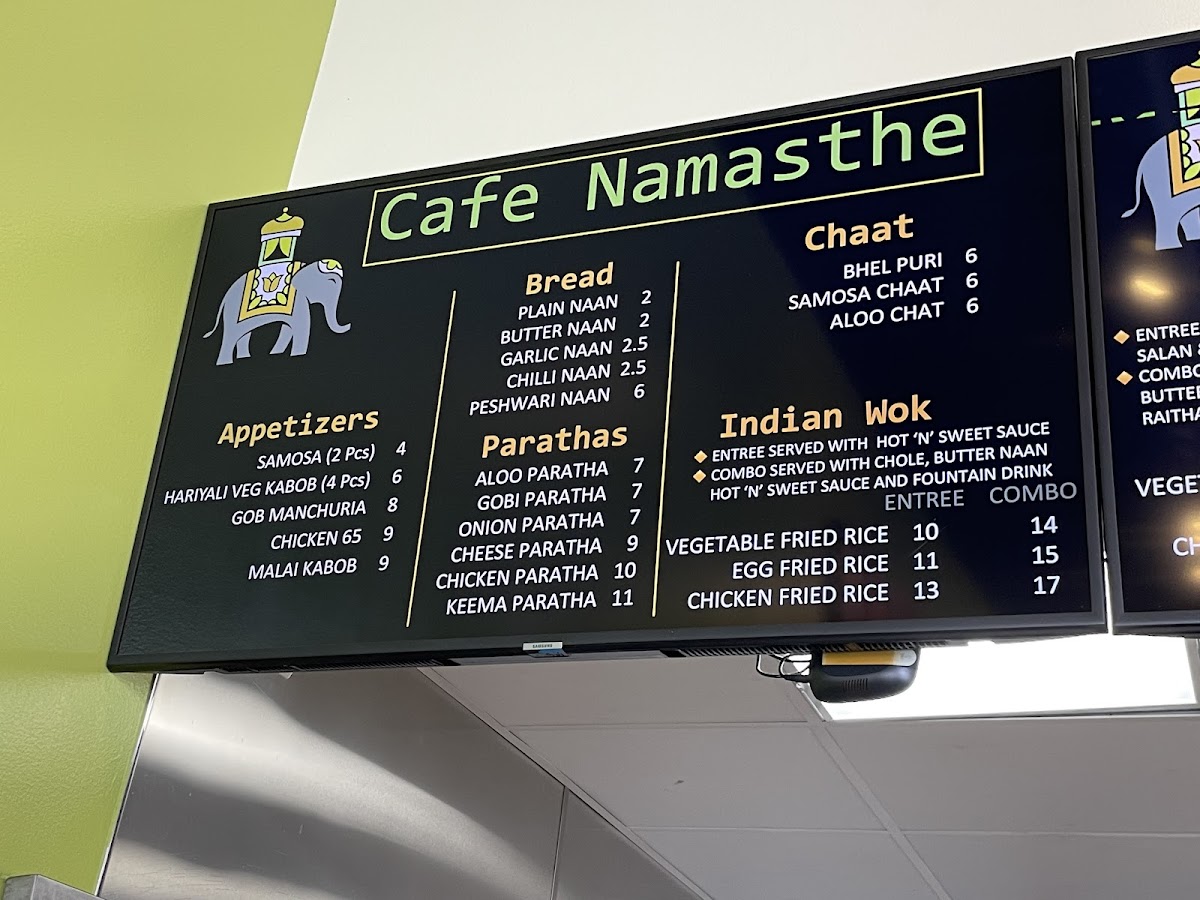 Cafe Namasthe
Appetizers
SAMOSA (2 Pcs) 4
HARIYALI VEG KABOB (4 Pcs) 6
GOB MANCHURIA 8
CHICKEN 65 9
MALAI KABOB 9
Bread
PLAIN NAAN 2
BUTTER NAAN 2
GARLIC NAAN 2.5
CHILLI NAAN 2.5
PESHWARI NAAN 6
Parathas
ALOO PARATHA 7
GOBI PARATHA 7
ONION PARATHA 7
CHEESE PARATHA 9
CHICKEN PARATHA 10
KEEMA PARATHA 11
Chaat
BHEL PURI 6
SAMOSA CHAAT 6
ALOO CHAT 6
Indian Wok
ENTREE SERVED WITH HOT 'N' SWEET SAUCE
COMBO SERVED WITH CHOLE, BUTTER NAAN
HOT 'N' SWEET SAUCE AND FOUNTAIN DRINK
ENTREE COMBO
VEGETABLE FRIED RICE 10 14
EGG FRIED RICE 11 15
CHICKEN FRIED RICE 13 17
SAMSUNG
ENTREE
SALAN
COMBO